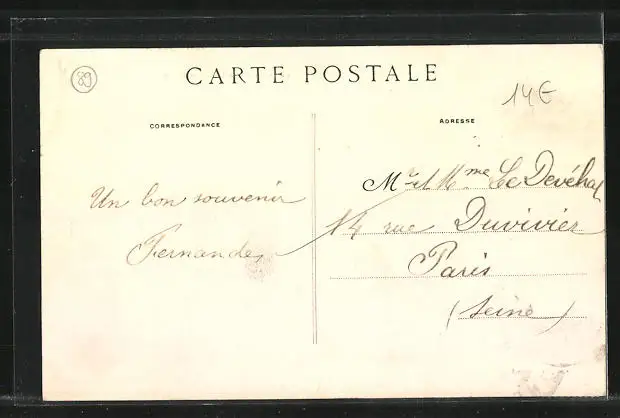 89
CARTE POSTALE
14€
CORRESPONDANCE
ADRESSE
Mr et Mme Le Devéhat
14 rue Duvivier
Paris
(Seine)
Un bon souvenir
Fernande